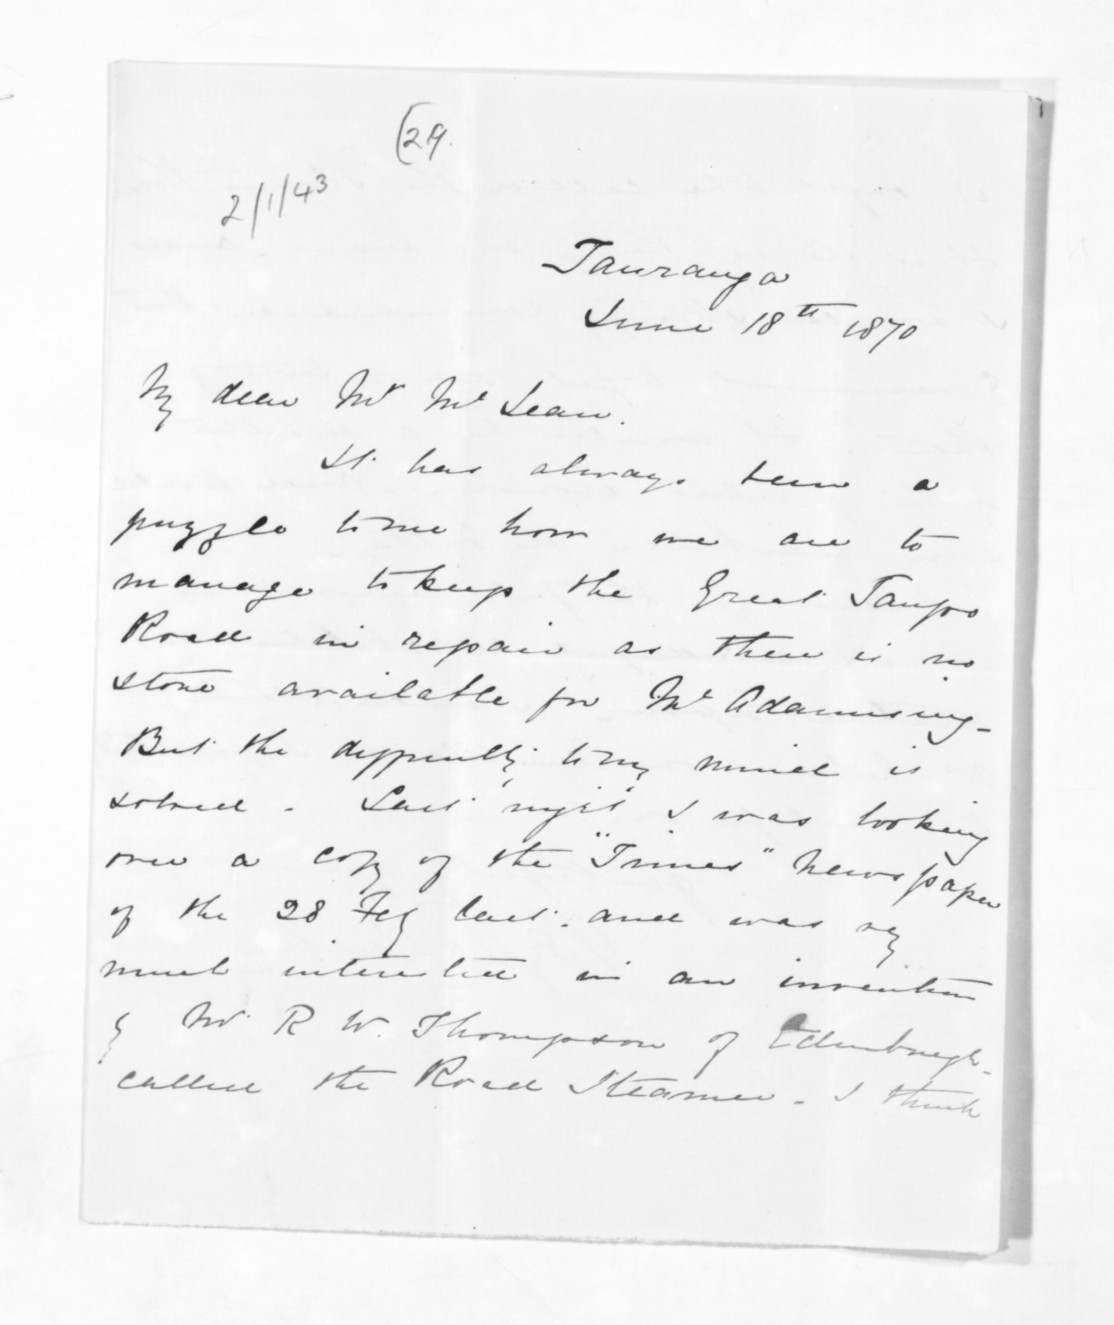 (29.
2/1/43
Tauranga
June 18th 1870
My dear Mr McLean.
It has always been a
puzzle to me how we are to
manage to keep the Great Taupo
Road in repair as there is no
stone available for McAdamising -
But the difficulty to my mind is
solved - Last night I was looking
over a copy of the "Times" Newspaper
of the 28 Feby last. and was vy
much interested in an invention
by Mr R W. Thompson of Edinburgh -
called the Road Steamer - I think